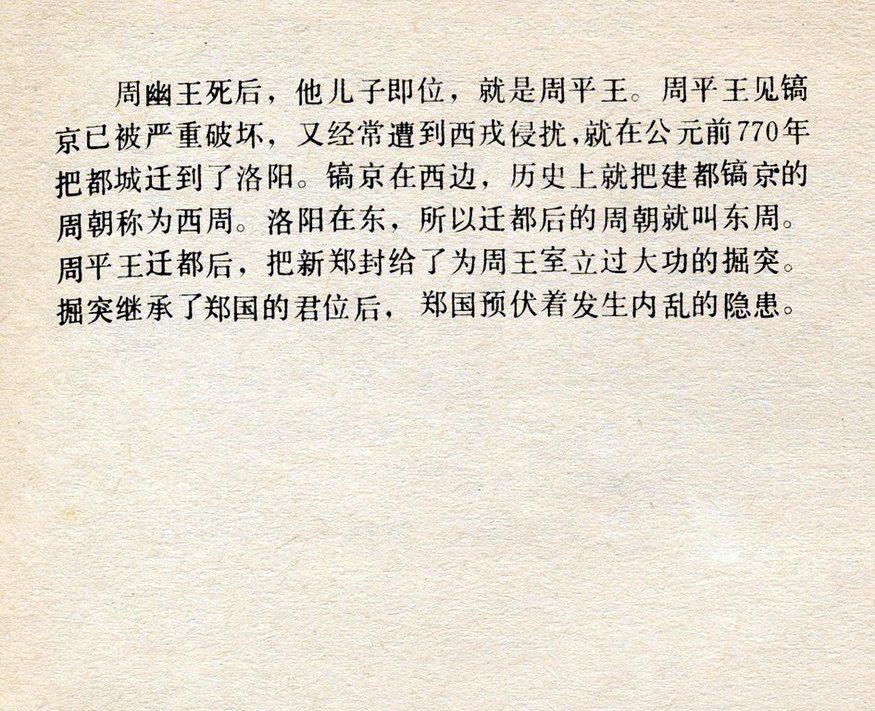 周幽王死后，他儿子即位，就是周平王。周平王见镐
京已被严重破坏，又经常遭到西戎侵扰，就在公元前770年
把都城迁到了洛阳。镐京在西边，历史上就把建都镐京的
周朝称为西周。洛阳在东，所以迁都后的周朝就叫东周。
周平王迁都后，把新郑封给了为周王室立过大功的掘突。
掘突继承了郑国的君位后，郑国预伏着发生内乱的隐患。